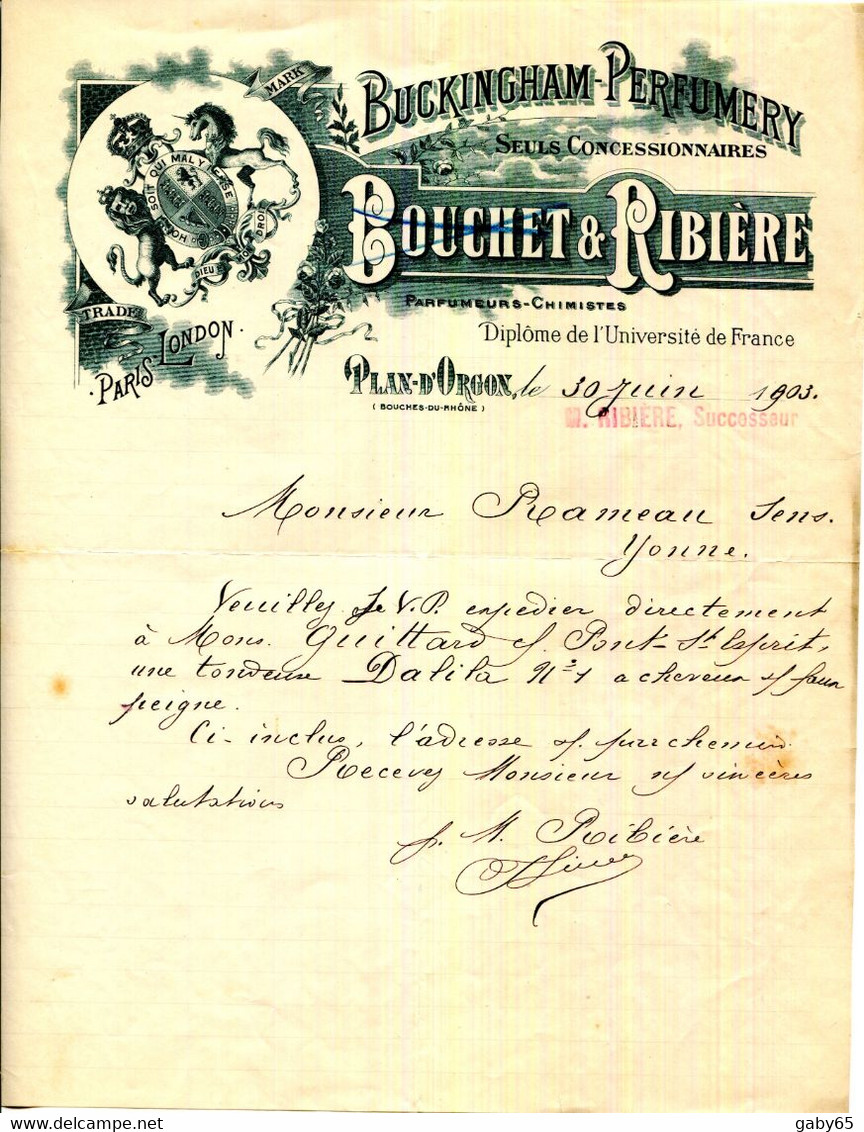 MARK
BUCKINGHAM-PERFUMERY
SEULS CONCESSIONNAIRES
HONI SOIT QUI MAL Y PENSE
DIEU ET MON DROIT
BOUCHET & RIBIÈRE
TRADE
PARFUMEURS-CHIMISTES
Diplôme de l'Université de France
PARIS LONDON
PLAN-D'ORGON, le 30 Juin 1903.
(BOUCHES-DU-RHÔNE)
M. RIBIÈRE, Successeur
Monsieur Rameau Sens.
Yonne.
Veuillez S. V. P. expedier directement
à Mons. Guittard Pont-St Esprit,
une tondeuse Dalila No 1 a cheveux faux
peigne.
Ci-inclus, l'adresse s/ parchemin.
Recevez Monsieur sincères
salutations
p. M. Ribière
delcampe.net
gaby65